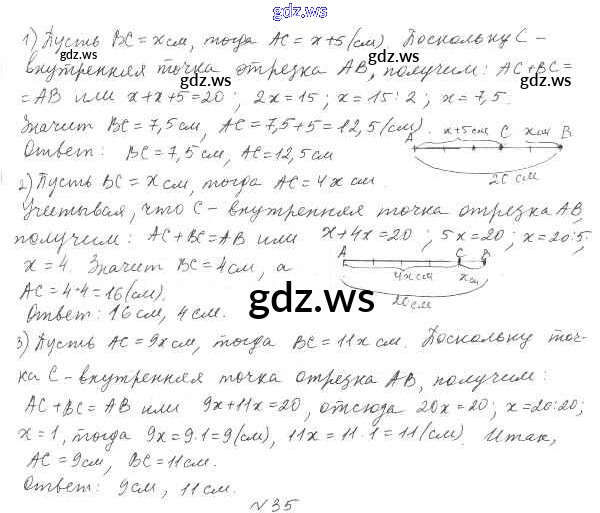 gdz.ws
1) Пусть BC = x см, тогда AC = x+5 (см). Поскольку C –
gdz.ws gdz.ws
внутренняя точка отрезка AB, получим: AC+BC=
=AB или x+x+5=20; 2x=15; x=15:2; x=7,5.
Значит BC=7,5 см, AC=7,5+5=12,5 (см).
A x+5см C x см B
Ответ: BC=7,5 см, AC=12,5 см
20 см
gdz.ws gdz.ws
2) Пусть BC = x см, тогда AC=4x см.
Учитывая, что C – внутренняя точка отрезка AB,
получим: AC+BC=AB или x+4x=20; 5x=20; x=20:5;
x=4. Значит BC=4см, а
A 4x см C x см B
AC=4·4=16(см).
20 см
Ответ: 16 см, 4 см.
gdz.ws
3) Пусть AC=9x см, тогда BC=11x см. Поскольку точ-
ка C – внутренняя точка отрезка AB, получим:
AC+BC=AB или 9x+11x=20, отсюда 20x=20; x=20:20;
x=1, тогда 9x=9·1=9(см), 11x=11·1=11(см). Итак,
gdz.ws gdz.ws
AC=9см, BC=11см.
Ответ: 9см, 11 см.
№35